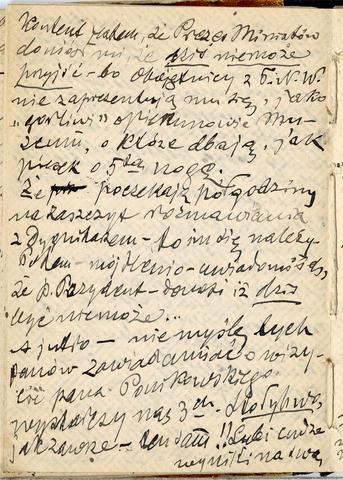 Kontent jestem, że Prezes Ministrów
doniósł mi, że dziś niemoże
przyjść – bo obojętnicy z T.N.W.
nie zaprezentują mu się, jako
"gorliwi" opiekunowie Mu-
zeum, o które dbają, jak
piesek o 5tą nogę.
Że poczekają pół godziny
na zaszczyt rozmawiania
z Dygnitarzem – to im się należy.
Potem – mój
że p. Prezydent – donosi iż dziś
być niemoże...
A jutro – nie myślę tych
panów zawiadamiać o wizy-
cie pana Ponikowskiego.
wystarczy nas 3ch
jak zawsze – !! Lubi cudze
wyniki na swą